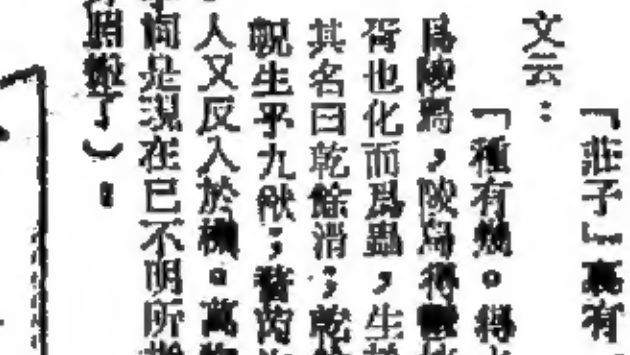 「莊子」裏有
文云：
「種有幾。得
爲陵舄，陵舄得
胥也化而爲蟲，生
其名曰乾餘；乾
生乎九猷；瞀芮
人又反入於機。萬
是現在已不明所
了）。